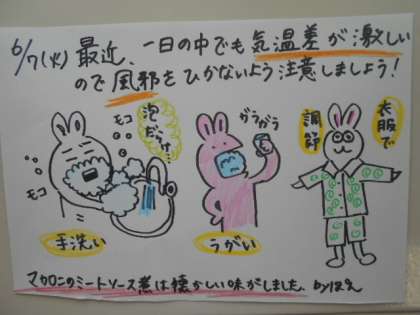 6/7(火) 最近、一日の中でも気温差が激しい
ので風邪をひかないよう注意しましょう!
泡だらけ
モコ
モコ
ガラガラ
衣服で
調節
手洗い
うがい
マカロニのミートソース煮は懐かしい味がしました。by